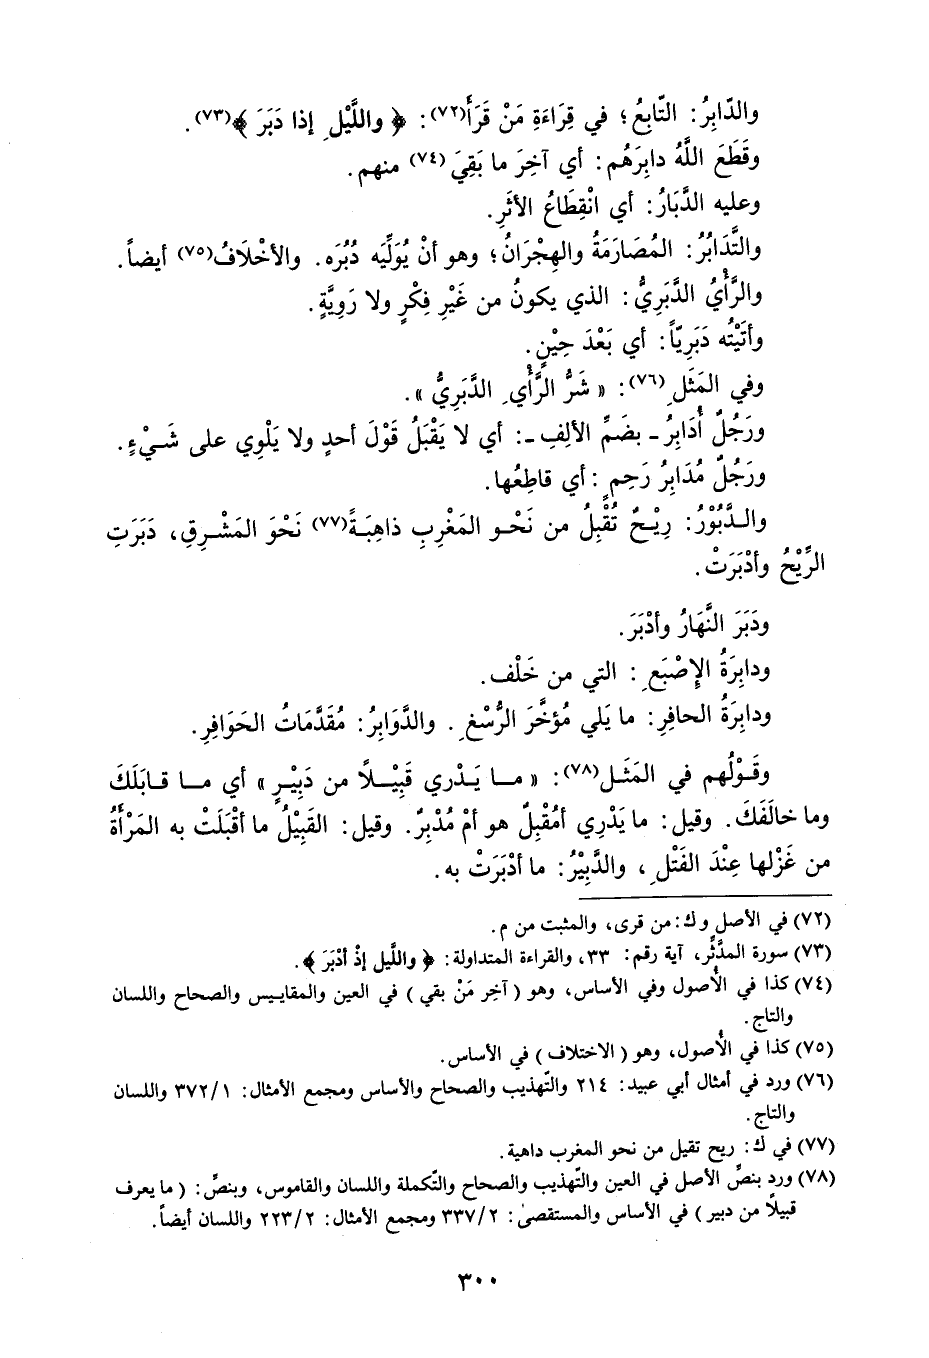 والدّابِرُ: التّابعُ؛ في قِرَاءَةِ مَنْ قَرَأَ(٧٢): ﴿ واللَّيْلِ إذا دَبَرَ ﴾(٧٣).
وقَطَعَ اللَّهُ دابِرَهُم: أي آخِرَ ما بَقِيَ (٧٤) منهم.
وعليه الدَّبَارُ: أي انْقِطَاعُ الأثَرِ.
والتَّدَابُرُ: المُصَارَمَةُ والهِجْرَانُ؛ وهو أنْ يُوَلِّيه دُبُرَه. والأخْلَافُ(٧٥) أيضاً.
والرَّأْيُ الدَّبَرِيُّ: الذي يكونُ من غَيْرِ فِكْرٍ ولا رَوِيَّةٍ.
وأتَيْتُه دَبَرِيّاً: أي بَعْدَ حِيْنٍ.
وفي المَثَلِ(٧٦): « شَرُّ الرَّأْيِ الدَّبَرِيُّ ».
ورَجُلٌ أُدَابِرُ ـ بضَمِّ الألِفِ ـ: أي لا يَقْبَلُ قَوْلَ أحدٍ ولا يَلْوِي على شَيْءٍ.
ورَجُلٌ مُدَابِرُ رَحِمٍ: أي قاطِعُها.
والدَّبُوْرُ: رِيْحٌ تُقْبِلُ من نَحْوِ المَغْرِبِ ذاهِبَةً(٧٧) نَحْوَ المَشْرِقِ، دَبَرَتِ
الرِّيْحُ وأدْبَرَتْ.
ودَبَرَ النَّهَارُ وأدْبَرَ.
ودابِرَةُ الإصْبَعِ: التي من خَلْف.
ودابِرَةُ الحافِرِ: ما يَلي مُؤخَّرَ الرُّسْغِ. والدَّوَابِرُ: مُقَدَّمَاتُ الحَوَافِرِ.
وقَوْلُهم في المَثَل(٧٨): « ما يَدْري قَبِيْلاً من دَبِيْرٍ » أي ما قابَلَكَ
وما خالَفَكَ. وقيل: ما يَدْرِي أمُقْبِلٌ هو أمْ مُدْبِرٌ. وقيل: القَبِيْلُ ما أقْبَلَتْ به المَرْأَةُ
من غَزْلها عِنْدَ الفَتْلِ، والدَّبِيْرُ: ما أدْبَرَتْ به.
(٧٢) في الأصل وك: من قرى، والمثبت من م.
(٧٣) سورة المدَّثّر، آية رقم: ٣٣، والقراءة المتداولة: ﴿ والليل إذْ أدْبَرَ ﴾.
(٧٤) كذا في الأُصول وفي الأساس، وهو ( آخِر مَنْ بقي ) في العين والمقاييس والصحاح واللسان
والتاج.
(٧٥) كذا في الأُصول، وهو ( الاختلاف ) في الأساس.
(٧٦) ورد في أمثال أبي عبيد: ٢١٤ والتّهذيب والصحاح والأساس ومجمع الأمثال: ٣٧٢/١ واللسان
والتاج.
(٧٧) في ك: ريح تقيل من نحو المغرب داهية.
(٧٨) ورد بنصِّ الأصل في العين والتّهذيب والصحاح والتّكملة واللسان والقاموس، وبنصِّ: ( ما يعرف
قبيلاً من دبير ) في الأساس والمستقصىٰ: ٣٣٧/٢ ومجمع الأمثال: ٢٢٣/٢ واللسان أيضاً.
٣٠٠